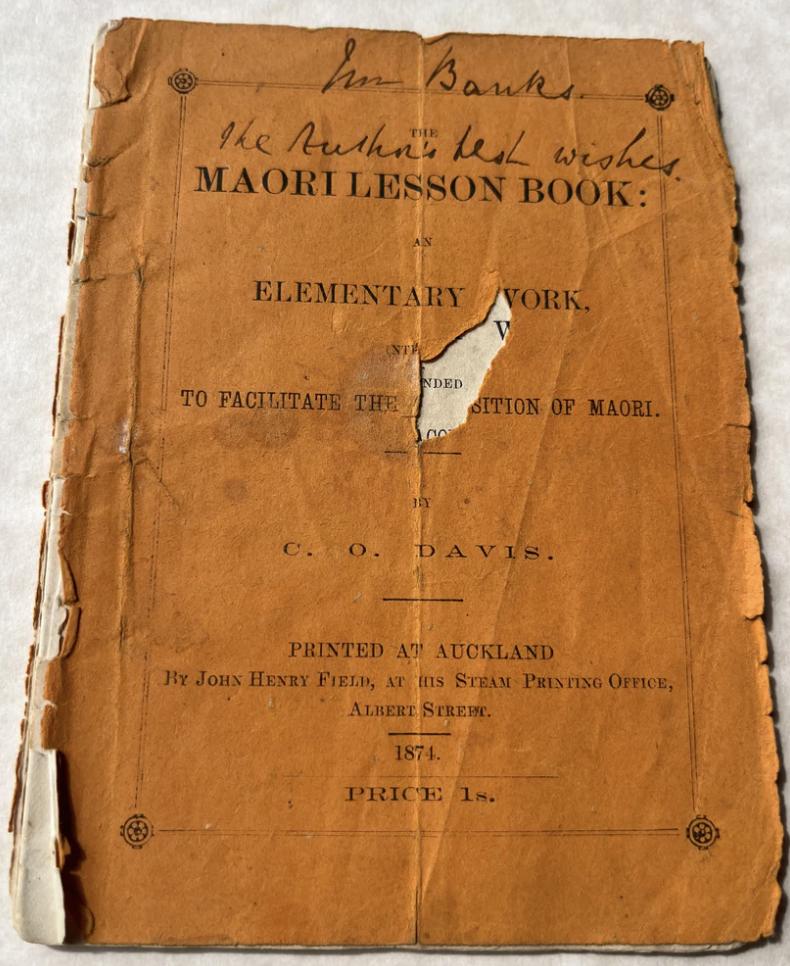 Banks.
THE
the Author's best wishes.
MAORI LESSON BOOK:
AN
ELEMENTARY WORK,
W
NTE
NDED
TO FACILITATE THE SITION OF MAORI.
ACQ
BY
C. O. DAVIS.
PRINTED AT AUCKLAND
BY JOHN HENRY FIELD, AT HIS STEAM PRINTING OFFICE,
ALBERT STREET.
1874.
PRICE 1s.